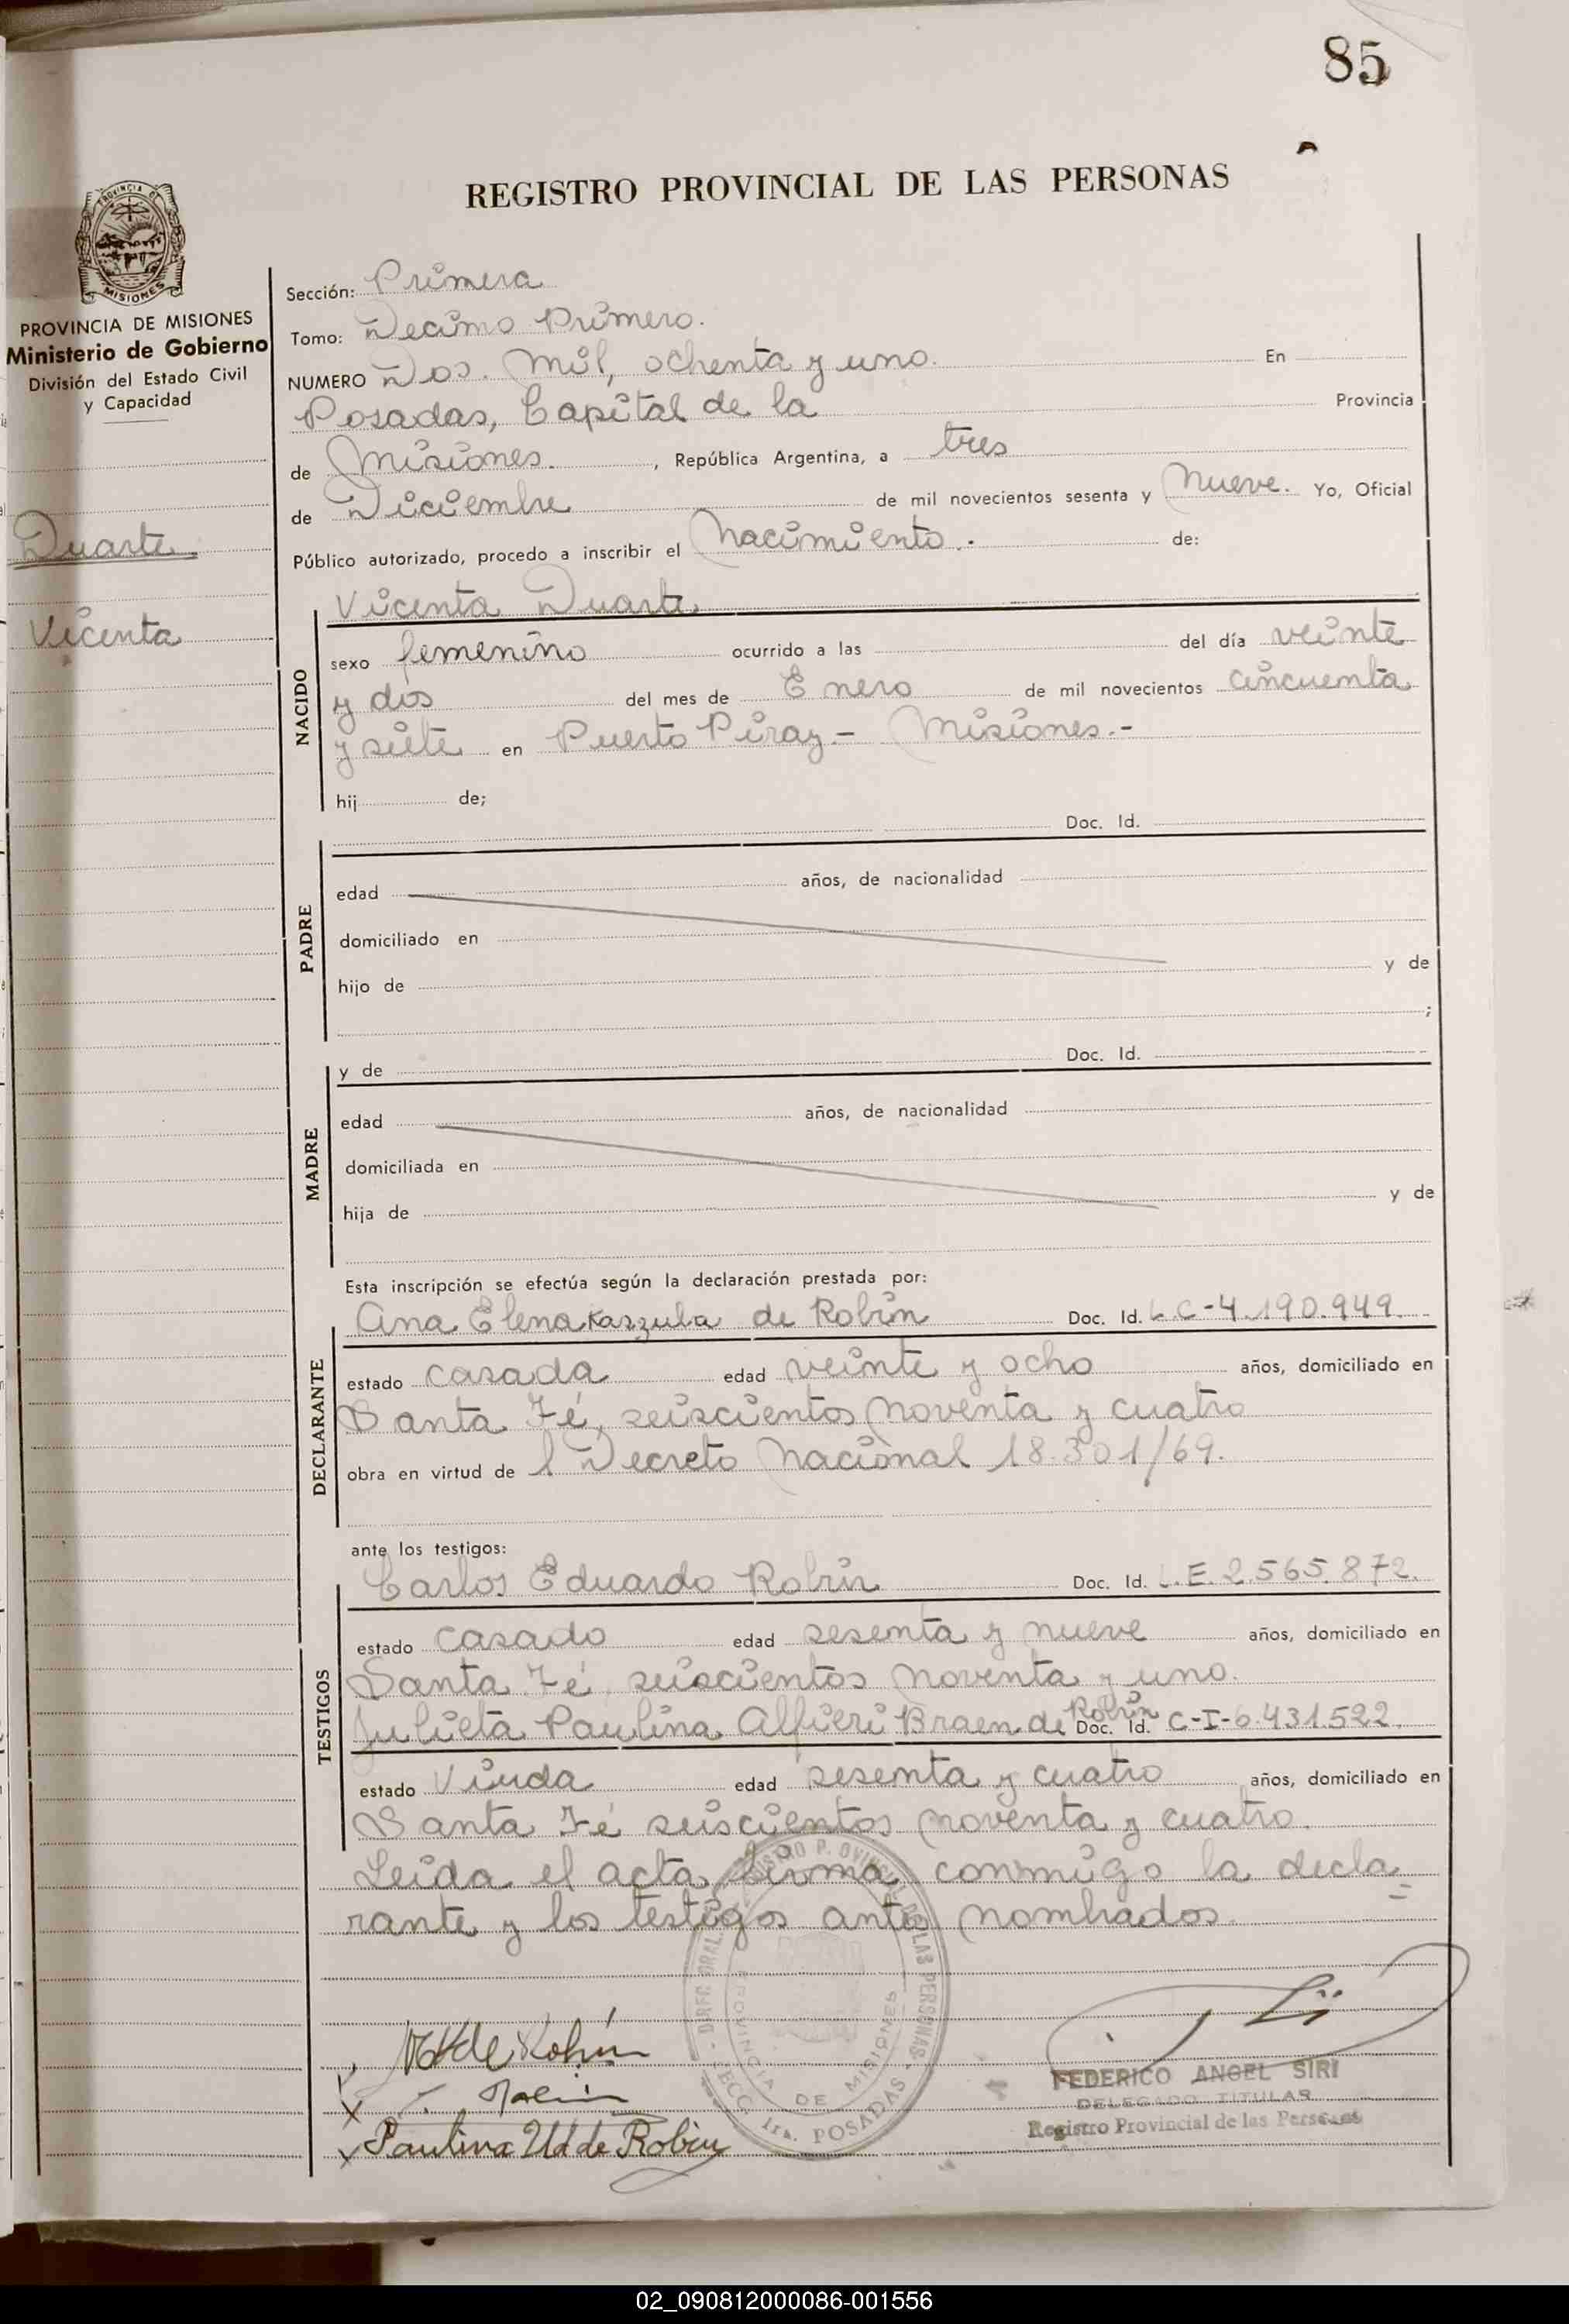 85
REGISTRO PROVINCIAL DE LAS PERSONAS
PROVINCIA DE
MISIONES
PROVINCIA DE MISIONES
Ministerio de Gobierno
División del Estado Civil
y Capacidad
Duarte
Vicenta
Sección: Primera
Tomo: Decimo Primero.
NUMERO Dos. Mil, ochenta y uno. En
Posadas, Capital de la Provincia
de Misiones. , República Argentina, a tres
de Diciembre de mil novecientos sesenta y Nueve. Yo, Oficial
Público autorizado, procedo a inscribir el Nacimiento.- de:
Vicenta Duarte
NACIDO
sexo femenino ocurrido a las del día veinte
y dos del mes de Enero de mil novecientos cincuenta
y siete en Puerto Piray - Misiones.-
hij de;
Doc. Id.
PADRE
edad años, de nacionalidad
domiciliado en
hijo de y de
;
y de Doc. Id.
MADRE
edad años, de nacionalidad
domiciliada en
hija de y de
Esta inscripción se efectúa según la declaración prestada por:
Ana Elena Kaszuba de Robin Doc. Id. L.C-4.190.949.
DECLARANTE
estado casada edad veinte y ocho años, domiciliado en
Santa Fé, seiscientos noventa y cuatro
obra en virtud de l Decreto Nacional 18.301/69.
ante los testigos:
Carlos Eduardo Robin Doc. Id. L.E.2.565.872.
TESTIGOS
estado casado edad sesenta y nueve años, domiciliado en
Santa Fé seiscientos noventa y uno.
Julieta Paulina Alfieri Braen de Robin Doc. Id. C-I-6.431.522.
estado Viuda edad sesenta y cuatro años, domiciliado en
Santa Fé seiscientos noventa y cuatro.
Leida el acta, firma conmigo la decla
rante y los testigos antes nombrados.
de Robin
Paulina Vd de Robin
PROVINCIA DE MISIONES
POSADAS
FEDERICO ANGEL SIRI
DELEGADO TITULAR
Registro Provincial de las Personas
02_090812000086-001556